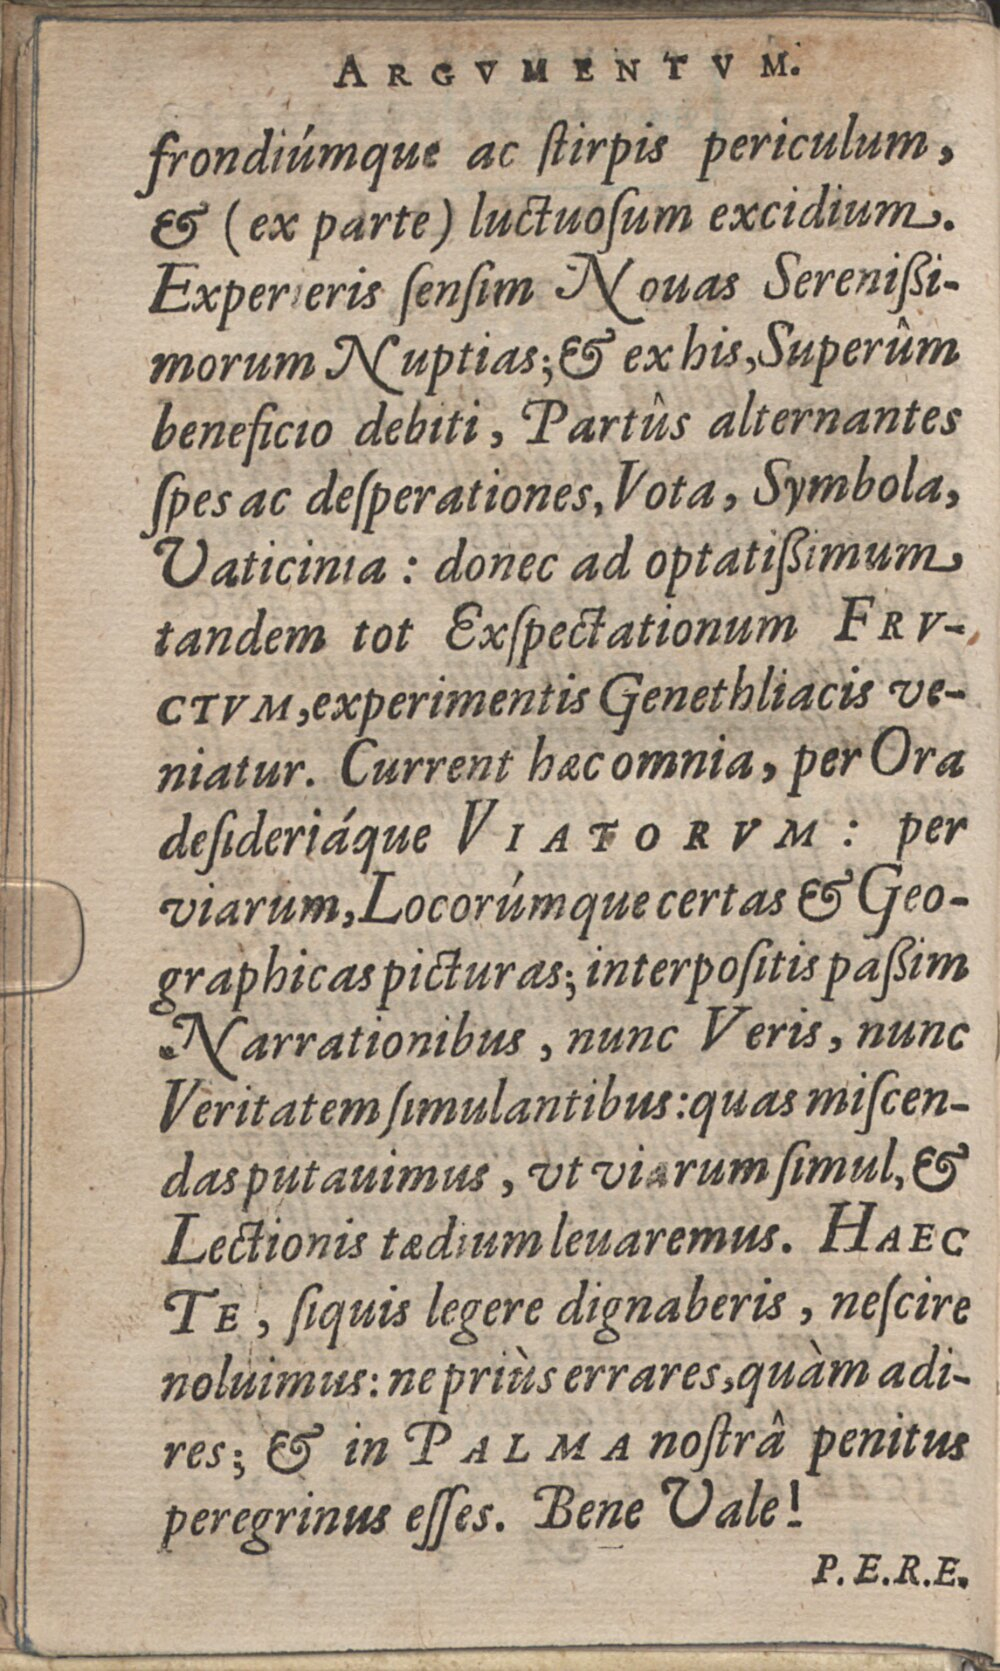 ARGVMENTVM.
frondiúmque ac ſtirpis periculum,
& (ex parte) luctuoſum excidium.
Experieris ſenſim Nouas Sereniſſi-
morum Nuptias; & ex his, Superûm
beneficio debiti, Partûs alternantes
ſpes ac deſperationes, Vota, Symbola,
Vaticinia: donec ad optatiſſimum
tandem tot Exſpectationum FRV-
CTVM, experimentis Genethliacis ve-
niatur. Current hæc omnia, per Ora
deſideriáque VIATORVM: per
viarum, Locorúmque certas & Geo-
graphicas picturas; interpoſitis paſſim
Narrationibus, nunc Veris, nunc
Veritatem ſimulantibus: quas miſcen-
das putauimus, vt viarum ſimul, &
Lectionis tædium leuaremus. HAEC
TE, ſiquis legere dignaberis, neſcire
noluimus: ne priùs errares, quàm adi-
res; & in PALMA noſtrâ penitus
peregrinus eſſes. Bene Vale!
P. E. R. E.